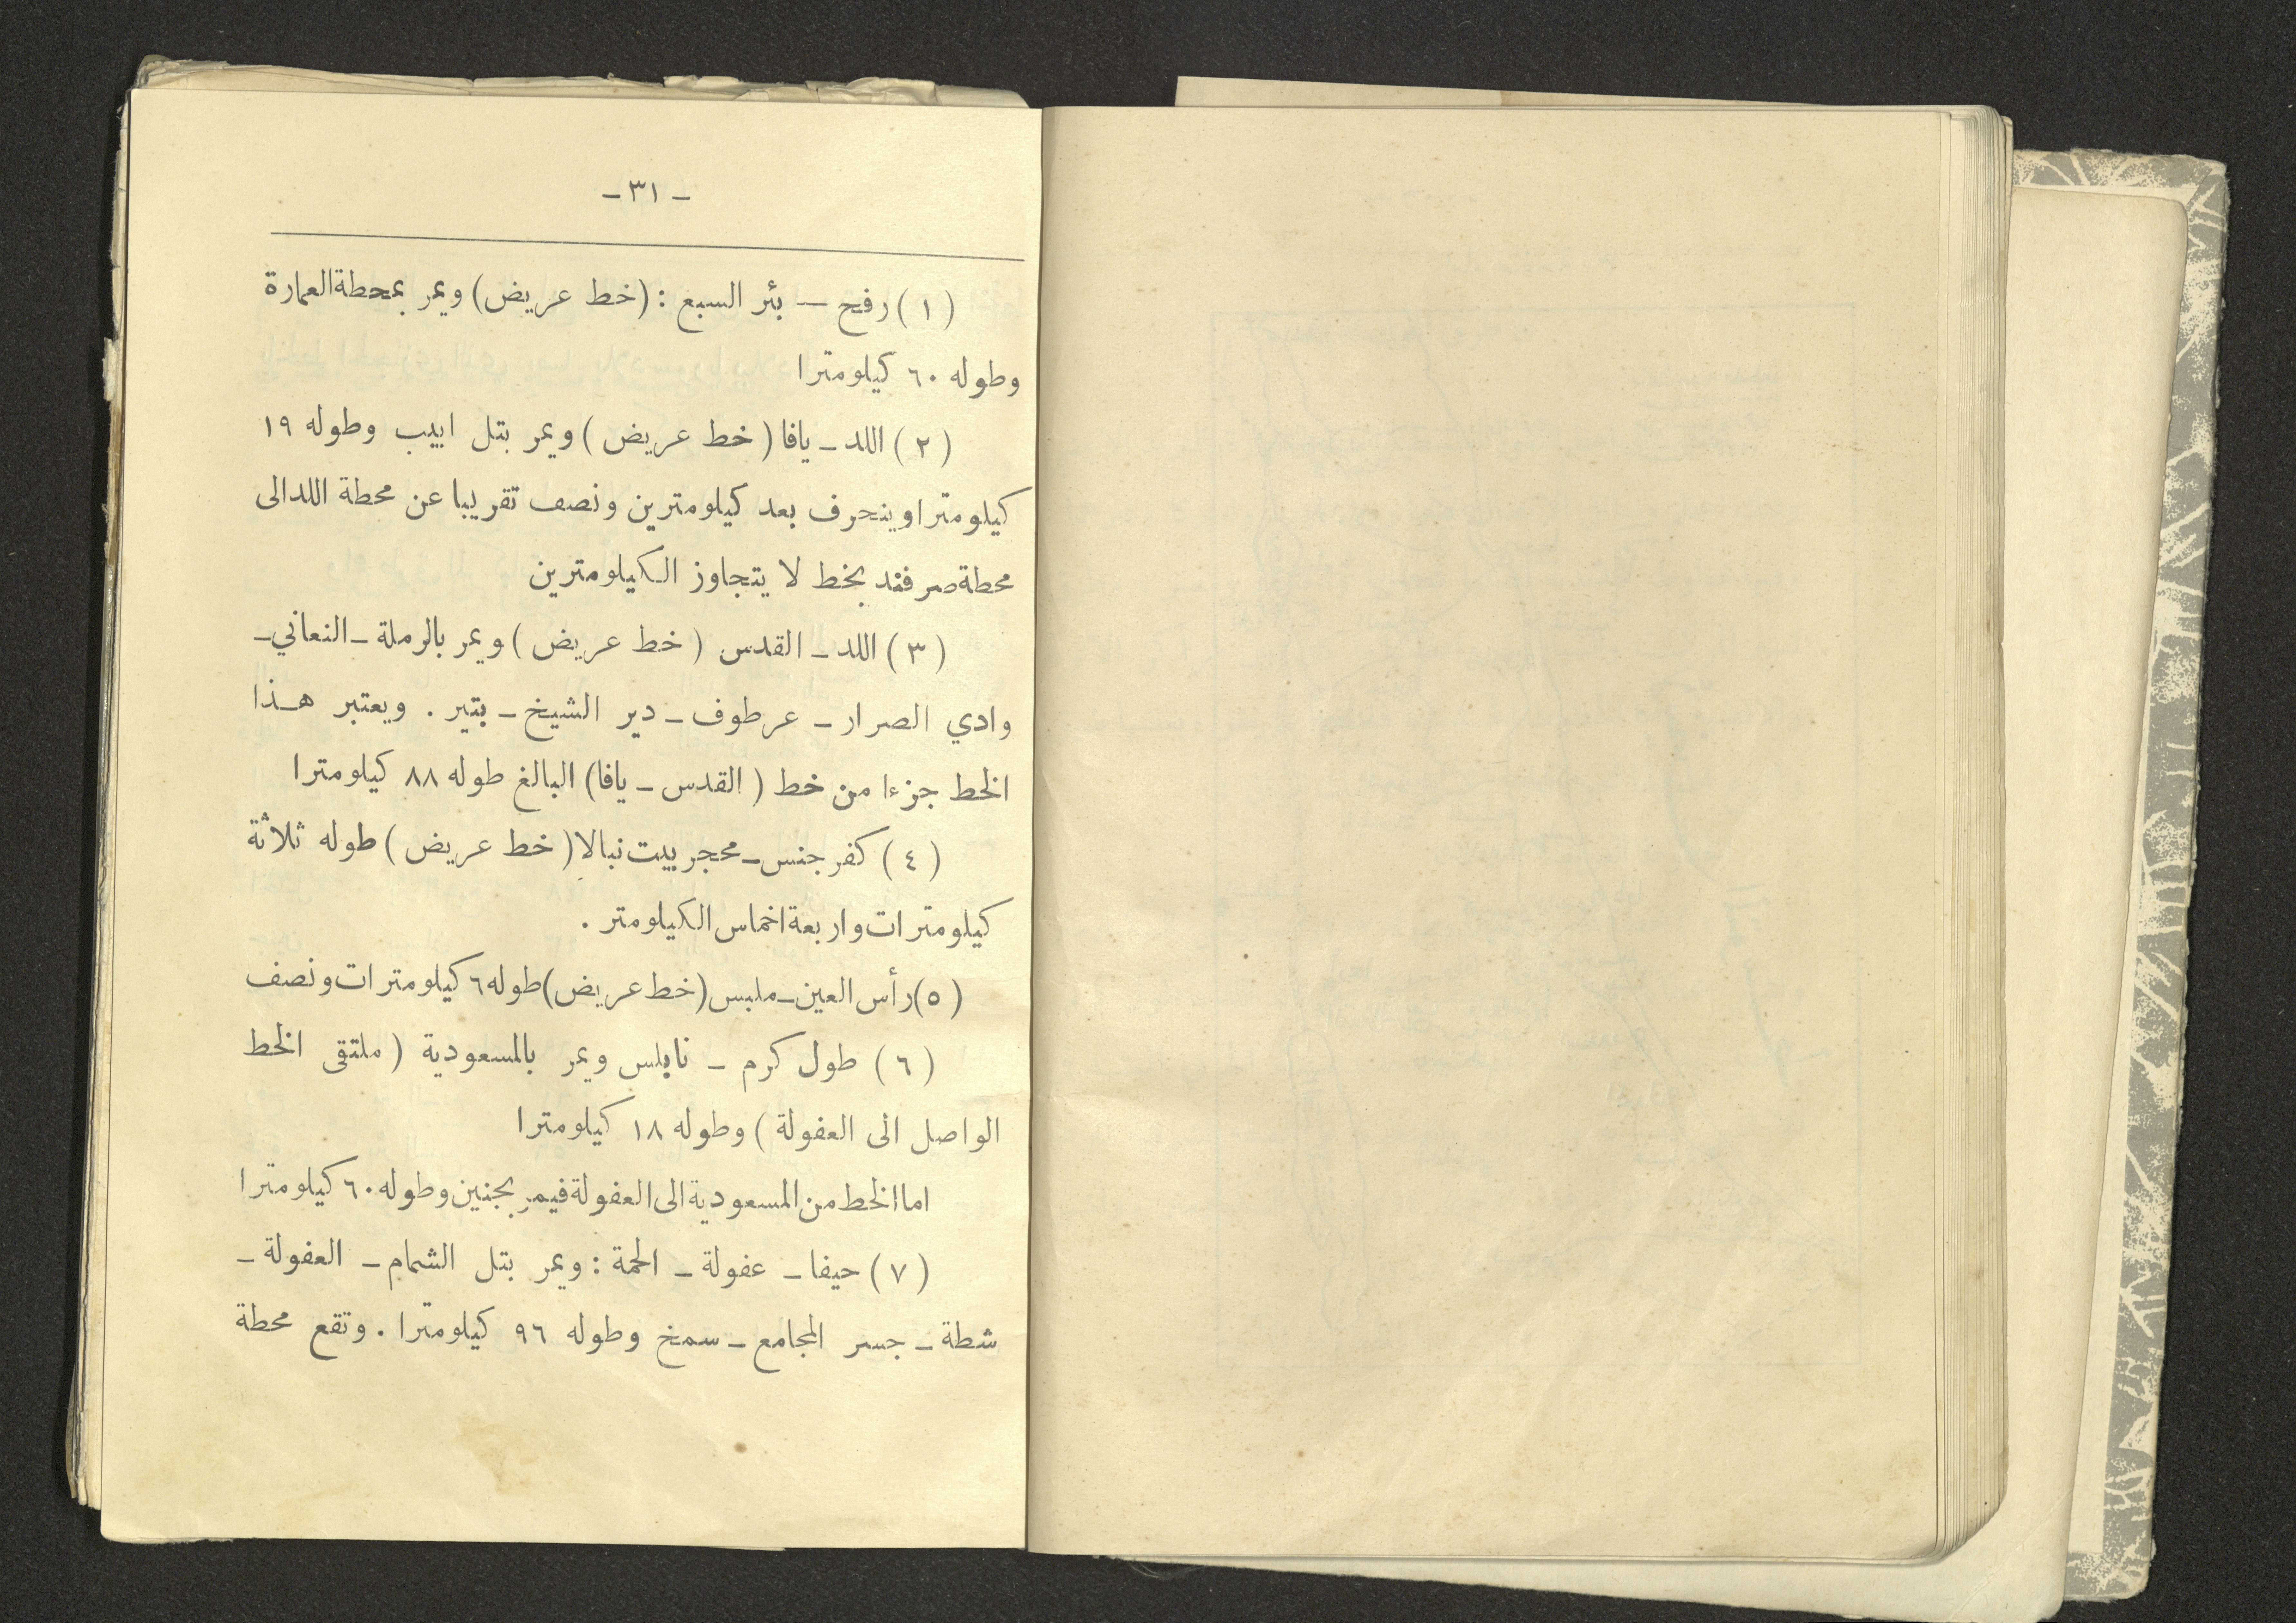 - ٣١ -
(١) رفح — بئر السبع : (خط عريض) ويمر بمحطة العمارة
وطوله ٦٠ كيلومترا
(٢) اللد - يافا (خط عريض) ويمر بتل ابيب وطوله ١٩
كيلومترا وينحرف بعد كيلومترين ونصف تقريبا عن محطة اللد الى
محطة صرفند بخط لا يتجاوز الكيلومترين
(٣) اللد - القدس (خط عريض) ويمر بالرملة - النعاني -
وادي الصرار - عرطوف - دير الشيخ - بتير . ويعتبر هذا
الخط جزءا من خط (القدس - يافا) البالغ طوله ٨٨ كيلومترا
(٤) كفر جنس - محجر بيت نبالا (خط عريض) طوله ثلاثة
كيلومترات واربعة اخماس الكيلومتر .
(٥) رأس العين - ملبس (خط عريض) طوله ٦ كيلومترات ونصف
(٦) طول كرم - نابلس ويمر بالمسعودية (ملتقى الخط
الواصل الى العفولة) وطوله ١٨ كيلومترا
اما الخط من المسعودية الى العفولة فيمر بجنين وطوله ٦٠ كيلومترا
(٧) حيفا - عفولة - الحمة : ويمر بتل الشمام - العفولة -
شطة - جسر المجامع - سمخ وطوله ٩٦ كيلومترا . وتقع محطة